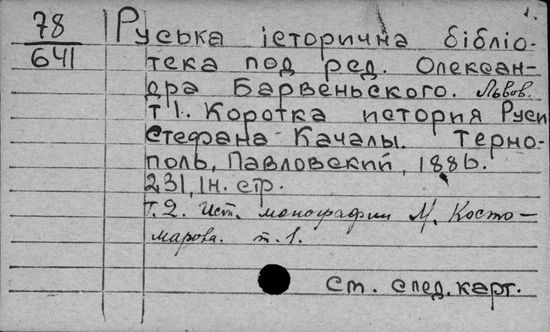 1.
78
641
Руська історична бібліо-
тека под ред. Олексан-
дра Барвеньского. Львов.
т 1. Коротка история Руси
Стефана Качалы. Терно-
поль, Павловский, 1886.
231, 1н. стр.
т. 2. Ист. монографии М. Косто-
марова. т. 1.
Ст. след. карт.